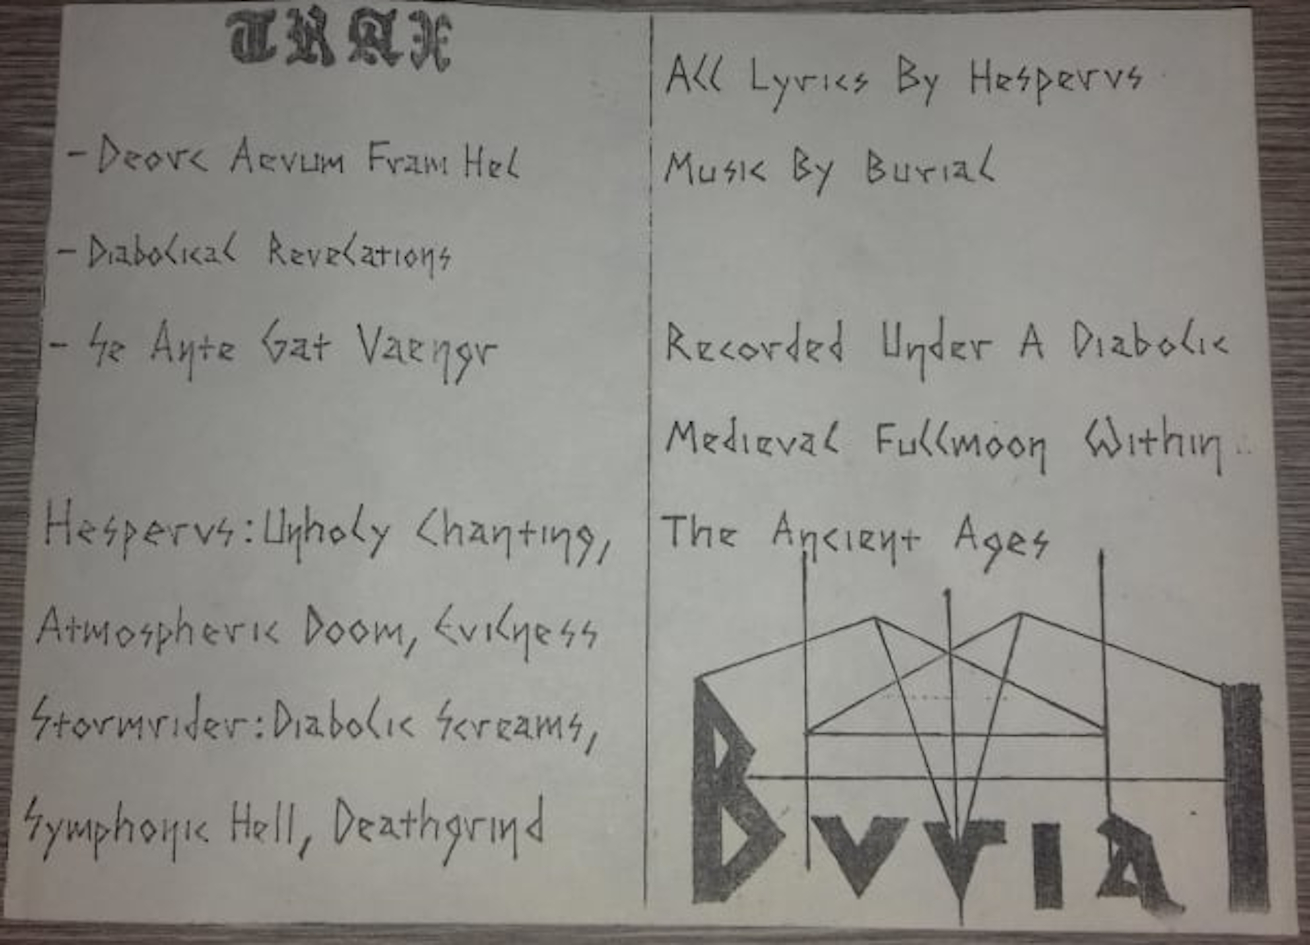 TRAX
- Deorc Aevum Fram Hel
- Diabolical Revelations
- Se Ante Gat Vaengr
Hespervs: Unholy Chanting,
Atmospheric Doom, Evilness
Stormrider: Diabolic Screams,
Symphonic Hell, Deathgrind
All Lyrics By Hespervs
Music By Burial
Recorded Under A Diabolic
Medieval Fullmoon Within..
The Ancient Ages
Bvrial